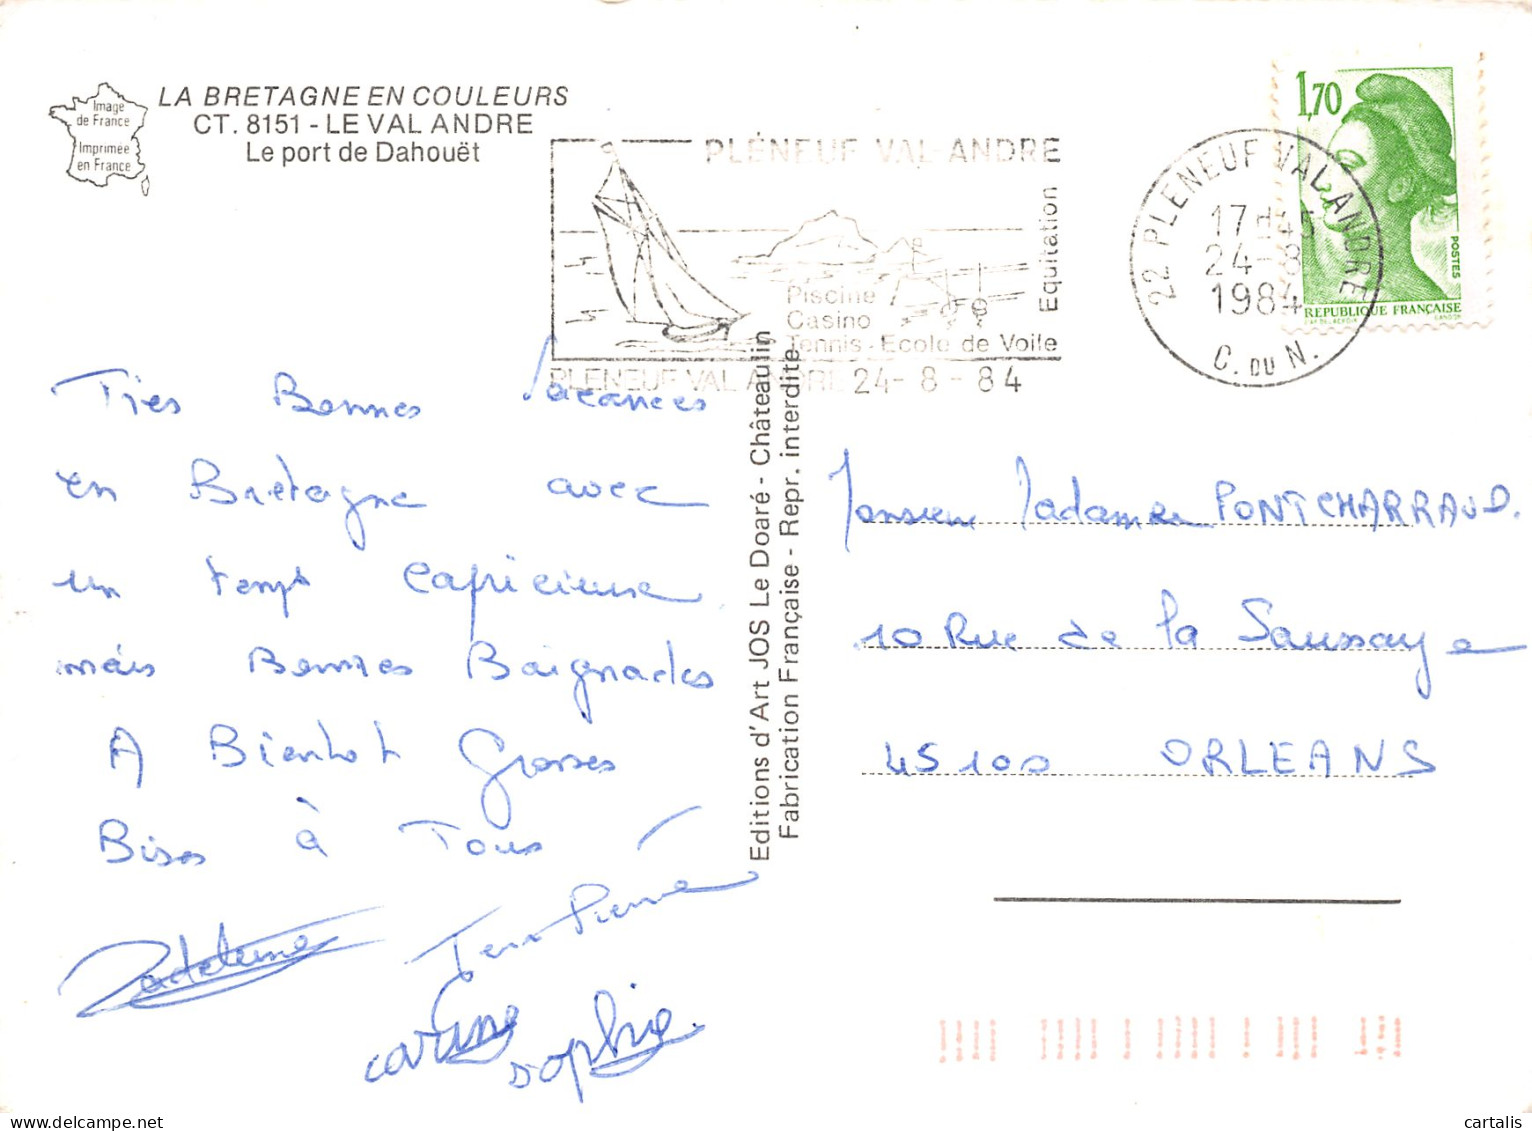 Image
de France
Imprimée
en France
LA BRETAGNE EN COULEURS
CT. 8151 - LE VAL ANDRE
Le port de Dahouët
PLÉNEUF VAL-ANDRE
Piscine
Casino
Tennis - Ecole de Voile
Equitation
PLENEUF VAL ANDRE 24- 8 - 84
22 PLENEUF VAL ANDRE
17 H 45
24-8
1984
C. DU N.
1,70
POSTES
REPUBLIQUE FRANÇAISE
Très Bonnes Vacances
en Bretagne avec
un temps capricieuse
mais Bonnes Baignades
A Bientot Grosses
Bises à Tous
Madeleine
Jean Pierre
carine
sophie
Editions d'Art JOS Le Doaré - Châteaulin
Fabrication Française - Repr. interdite
Monsieur Madame PONTCHARRAUD.
10 Rue de la Saussaye
45100 ORLEANS
cartalis